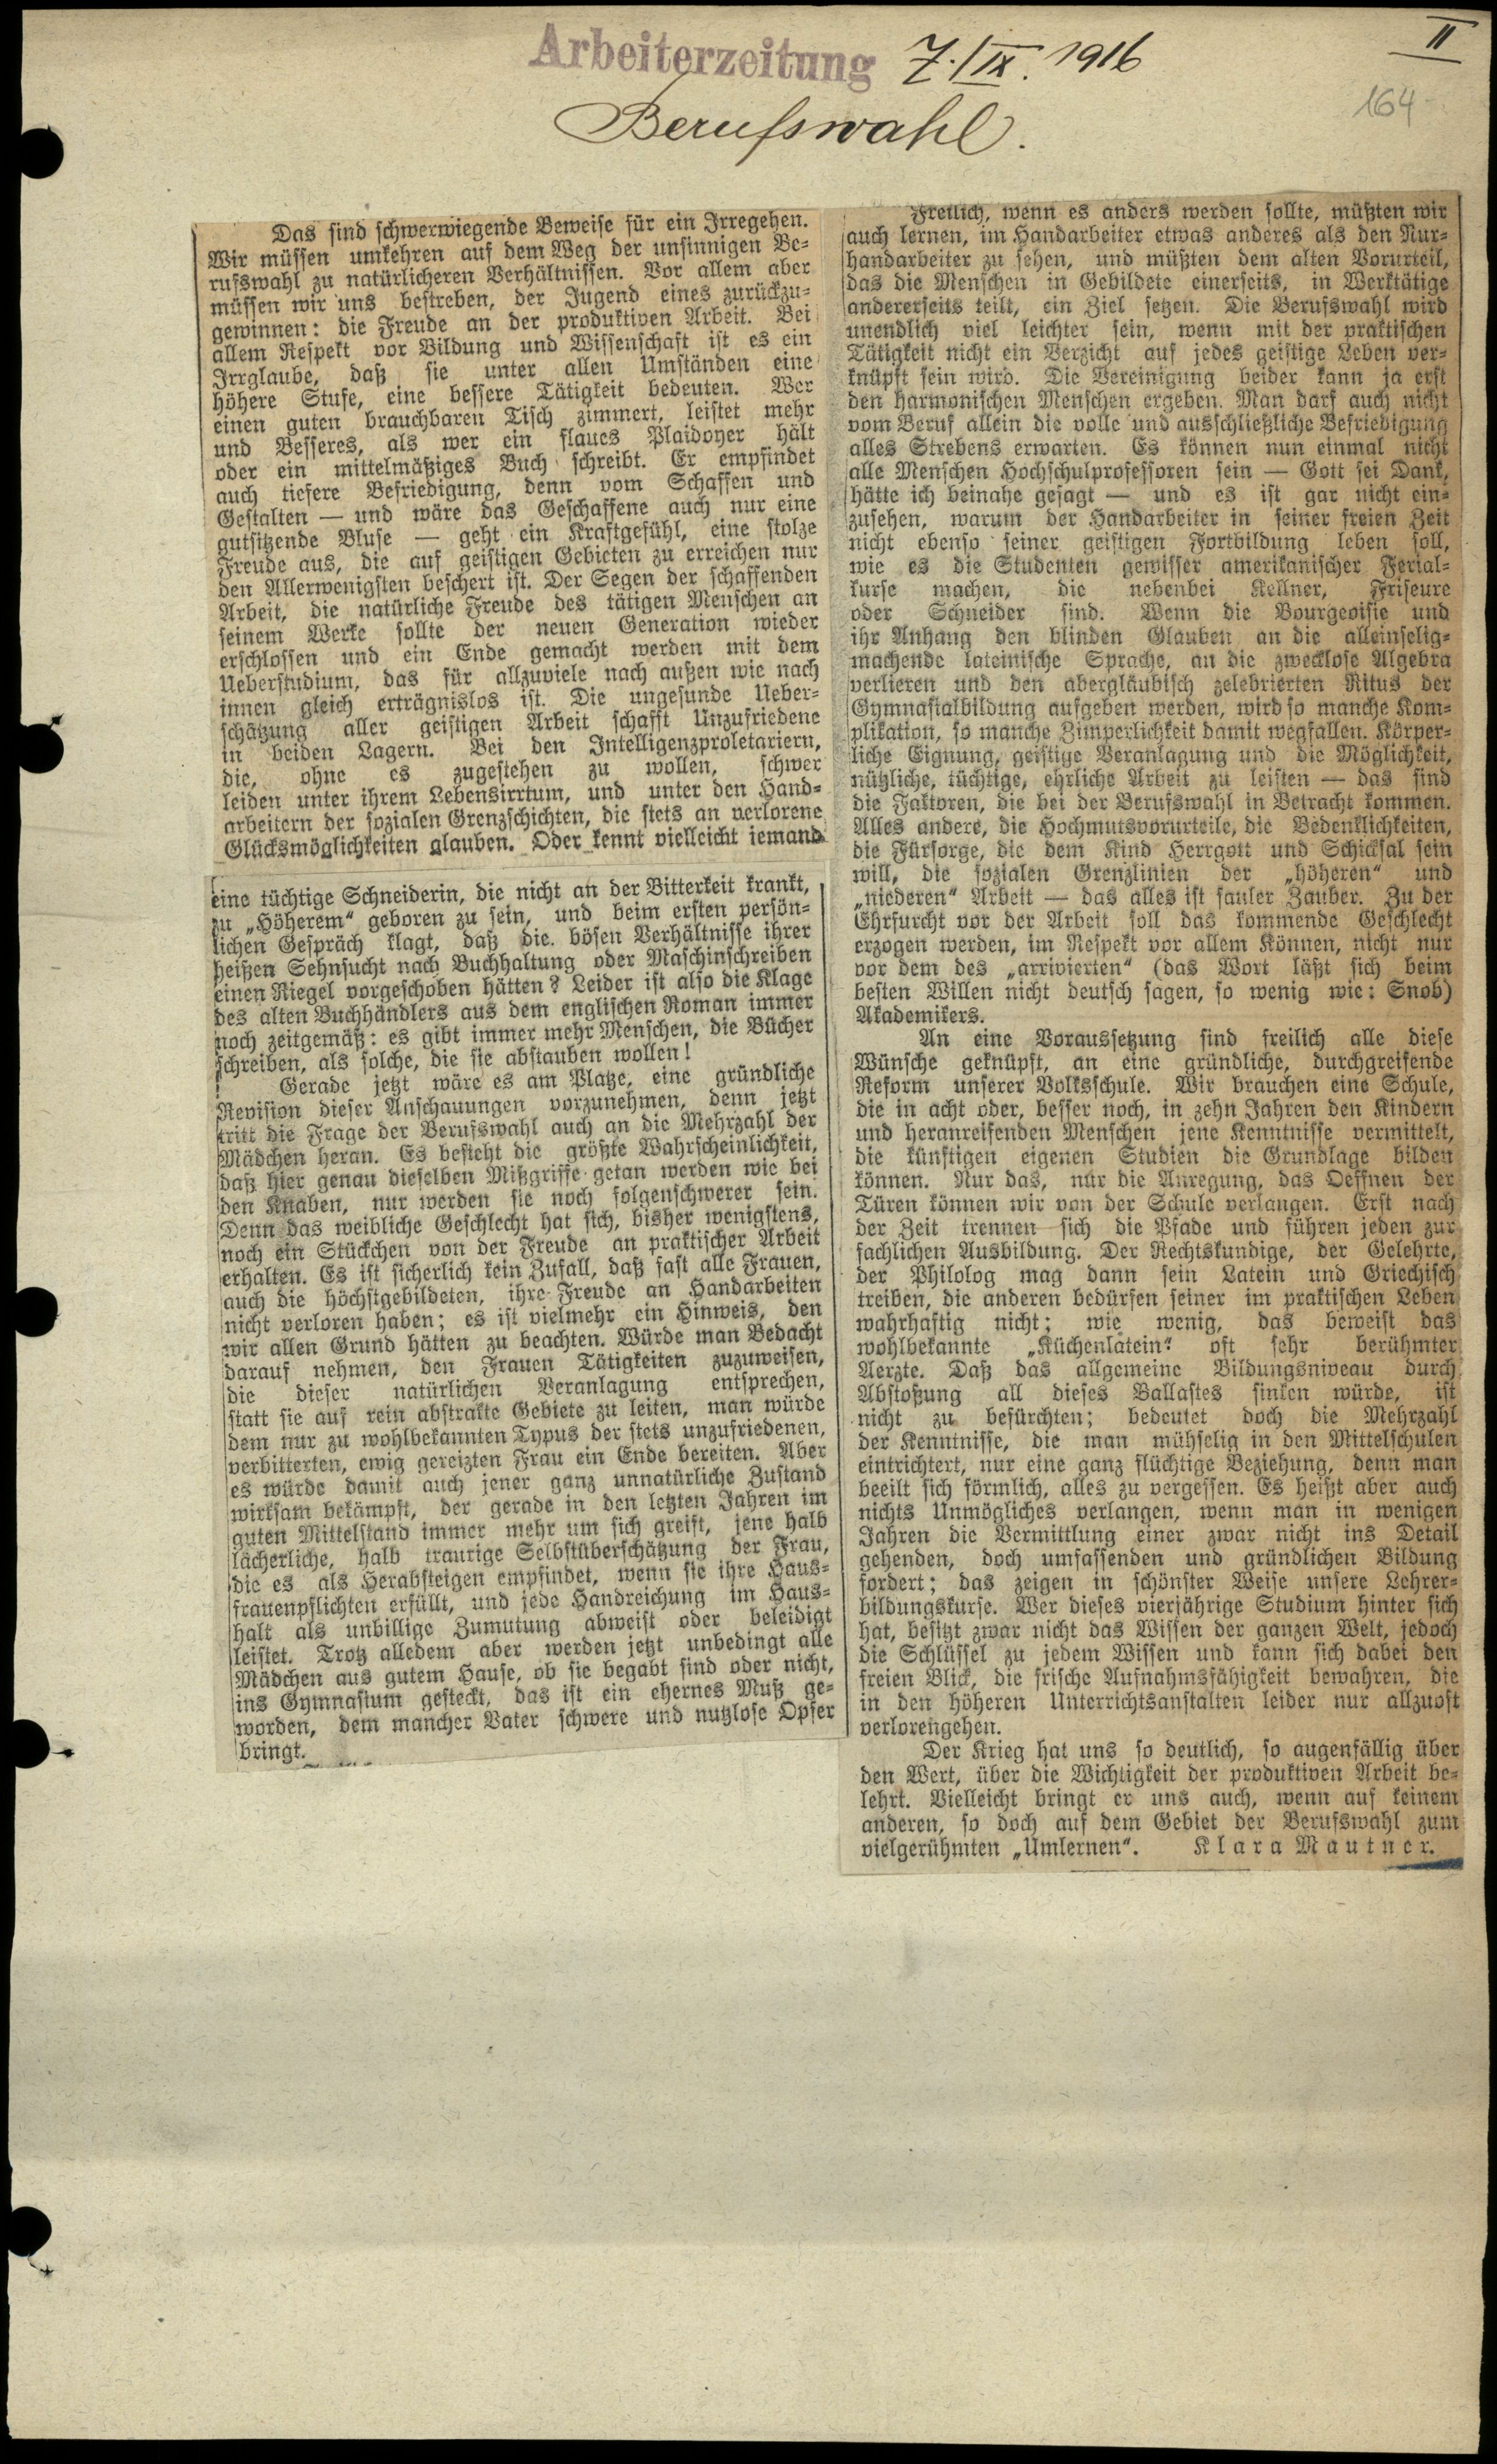 Arbeiterzeitung 7./IX. 1916
II
164
Berufswahl.
Das sind schwerwiegende Beweise für ein Irregehen.
Wir müssen umkehren auf dem Weg der unsinnigen Be-
rufswahl zu natürlicheren Verhältnissen. Vor allem aber
müssen wir uns bestreben, der Jugend eines zurückzu-
gewinnen: die Freude an der produktiven Arbeit. Bei
allem Respekt vor Bildung und Wissenschaft ist es ein
Irrglaube, daß sie unter allen Umständen eine
höhere Stufe, eine bessere Tätigkeit bedeuten. Wer
einen guten brauchbaren Tisch zimmert, leistet mehr
und Besseres, als wer ein flaues Plaidoyer hält
oder ein mittelmäßiges Buch schreibt. Er empfindet
auch tiefere Befriedigung, denn vom Schaffen und
Gestalten — und wäre das Geschaffene auch nur eine
gutsitzende Bluse — geht ein Kraftgefühl, eine stolze
Freude aus, die auf geistigen Gebieten zu erreichen nur
den Allerwenigsten beschert ist. Der Segen der schaffenden
Arbeit, die natürliche Freude des tätigen Menschen an
seinem Werke sollte der neuen Generation wieder
erschlossen und ein Ende gemacht werden mit dem
Ueberstudium, das für allzuviele nach außen wie nach
innen gleich erträgnislos ist. Die ungesunde Ueber-
schätzung aller geistigen Arbeit schafft Unzufriedene
in beiden Lagern. Bei den Intelligenzproletariern,
die, ohne es zugestehen zu wollen, schwer
leiden unter ihrem Lebensirrtum, und unter den Hand-
arbeitern der sozialen Grenzschichten, die stets an verlorene
Glücksmöglichkeiten glauben. Oder kennt vielleicht jemand
eine tüchtige Schneiderin, die nicht an der Bitterkeit krankt,
zu „Höherem“ geboren zu sein, und beim ersten persön-
lichen Gespräch klagt, daß die bösen Verhältnisse ihrer
heißen Sehnsucht nach Buchhaltung oder Maschinschreiben
einen Riegel vorgeschoben hätten? Leider ist also die Klage
des alten Buchhändlers aus dem englischen Roman immer
noch zeitgemäß: es gibt immer mehr Menschen, die Bücher
schreiben, als solche, die sie abstauben wollen!
Gerade jetzt wäre es am Platze, eine gründliche
Revision dieser Anschauungen vorzunehmen, denn jetzt
tritt die Frage der Berufswahl auch an die Mehrzahl der
Mädchen heran. Es besteht die größte Wahrscheinlichkeit,
daß hier genau dieselben Mißgriffe getan werden wie bei
den Knaben, nur werden sie noch folgenschwerer sein.
Denn das weibliche Geschlecht hat sich, bisher wenigstens,
noch ein Stückchen von der Freude an praktischer Arbeit
erhalten. Es ist sicherlich kein Zufall, daß fast alle Frauen,
auch die höchstgebildeten, ihre Freude an Handarbeiten
nicht verloren haben; es ist vielmehr ein Hinweis, den
wir allen Grund hätten zu beachten. Würde man Bedacht
darauf nehmen, den Frauen Tätigkeiten zuzuweisen,
die dieser natürlichen Veranlagung entsprechen,
statt sie auf rein abstrakte Gebiete zu leiten, man würde
dem nur zu wohlbekannten Typus der stets unzufriedenen,
verbitterten, ewig gereizten Frau ein Ende bereiten. Aber
es würde damit auch jener ganz unnatürliche Zustand
wirksam bekämpft, der gerade in den letzten Jahren im
guten Mittelstand immer mehr um sich greift, jene halb
lächerliche, halb traurige Selbstüberschätzung der Frau,
die es als Herabsteigen empfindet, wenn sie ihre Haus-
frauenpflichten erfüllt, und jede Handreichung im Haus-
halt als unbillige Zumutung abweist oder beleidigt
leistet. Trotz alledem aber werden jetzt unbedingt alle
Mädchen aus gutem Hause, ob sie begabt sind oder nicht,
ins Gymnasium gesteckt, das ist ein ehernes Muß ge-
worden, dem mancher Vater schwere und nutzlose Opfer
bringt.
Freilich, wenn es anders werden sollte, müßten wir
auch lernen, im Handarbeiter etwas anderes als den Nur-
handarbeiter zu sehen, und müßten dem alten Vorurteil,
das die Menschen in Gebildete einerseits, in Werktätige
andererseits teilt, ein Ziel setzen. Die Berufswahl wird
unendlich viel leichter sein, wenn mit der praktischen
Tätigkeit nicht ein Verzicht auf jedes geistige Leben ver-
knüpft sein wird. Die Vereinigung beider kann ja erst
den harmonischen Menschen ergeben. Man darf auch nicht
vom Beruf allein die volle und ausschließliche Befriedigung
alles Strebens erwarten. Es können nun einmal nicht
alle Menschen Hochschulprofessoren sein — Gott sei Dank,
hätte ich beinahe gesagt — und es ist gar nicht ein-
zusehen, warum der Handarbeiter in seiner freien Zeit
nicht ebenso seiner geistigen Fortbildung leben soll,
wie es die Studenten gewisser amerikanischer Ferial-
kurse machen, die nebenbei Kellner, Friseure
oder Schneider sind. Wenn die Bourgeoisie und
ihr Anhang den blinden Glauben an die alleinselig-
machende lateinische Sprache, an die zwecklose Algebra
verlieren und den abergläubisch zelebrierten Ritus der
Gymnasialbildung aufgeben werden, wird so manche Kom-
plikation, so manche Zimperlichkeit damit wegfallen. Körper-
liche Eignung, geistige Veranlagung und die Möglichkeit,
nützliche, tüchtige, ehrliche Arbeit zu leisten — das sind
die Faktoren, die bei der Berufswahl in Betracht kommen.
Alles andere, die Hochmutsvorurteile, die Bedenklichkeiten,
die Fürsorge, die dem Kind Herrgott und Schicksal sein
will, die sozialen Grenzlinien der „höheren“ und
„niederen“ Arbeit — das alles ist fauler Zauber. Zu der
Ehrfurcht vor der Arbeit soll das kommende Geschlecht
erzogen werden, im Respekt vor allem Können, nicht nur
vor dem des „arrivierten“ (das Wort läßt sich beim
besten Willen nicht deutsch sagen, so wenig wie: Snob)
Akademikers.
An eine Voraussetzung sind freilich alle diese
Wünsche geknüpft, an eine gründliche, durchgreifende
Reform unserer Volksschule. Wir brauchen eine Schule,
die in acht oder, besser noch, in zehn Jahren den Kindern
und heranreifenden Menschen jene Kenntnisse vermittelt,
die künftigen eigenen Studien die Grundlage bilden
können. Nur das, nur die Anregung, das Oeffnen der
Türen können wir von der Schule verlangen. Erst nach
der Zeit trennen sich die Pfade und führen jeden zur
fachlichen Ausbildung. Der Rechtskundige, der Gelehrte,
der Philolog mag dann sein Latein und Griechisch
treiben, die anderen bedürfen seiner im praktischen Leben
wahrhaftig nicht; wie wenig, das beweist das
wohlbekannte „Küchenlatein“ oft sehr berühmter
Aerzte. Daß das allgemeine Bildungsniveau durch
Abstoßung all dieses Ballastes sinken würde, ist
nicht zu befürchten; bedeutet doch die Mehrzahl
der Kenntnisse, die man mühselig in den Mittelschulen
eintrichtert, nur eine ganz flüchtige Beziehung, denn man
beeilt sich förmlich, alles zu vergessen. Es heißt aber auch
nichts Unmögliches verlangen, wenn man in wenigen
Jahren die Vermittlung einer zwar nicht ins Detail
gehenden, doch umfassenden und gründlichen Bildung
fordert; das zeigen in schönster Weise unsere Lehrer-
bildungskurse. Wer dieses vierjährige Studium hinter sich
hat, besitzt zwar nicht das Wissen der ganzen Welt, jedoch
die Schlüssel zu jedem Wissen und kann sich dabei den
freien Blick, die frische Aufnahmsfähigkeit bewahren, die
in den höheren Unterrichtsanstalten leider nur allzuoft
verlorengehen.
Der Krieg hat uns so deutlich, so augenfällig über
den Wert, über die Wichtigkeit der produktiven Arbeit be-
lehrt. Vielleicht bringt er uns auch, wenn auf keinem
anderen, so doch auf dem Gebiet der Berufswahl zum
vielgerühmten „Umlernen“. Klara Mautner.